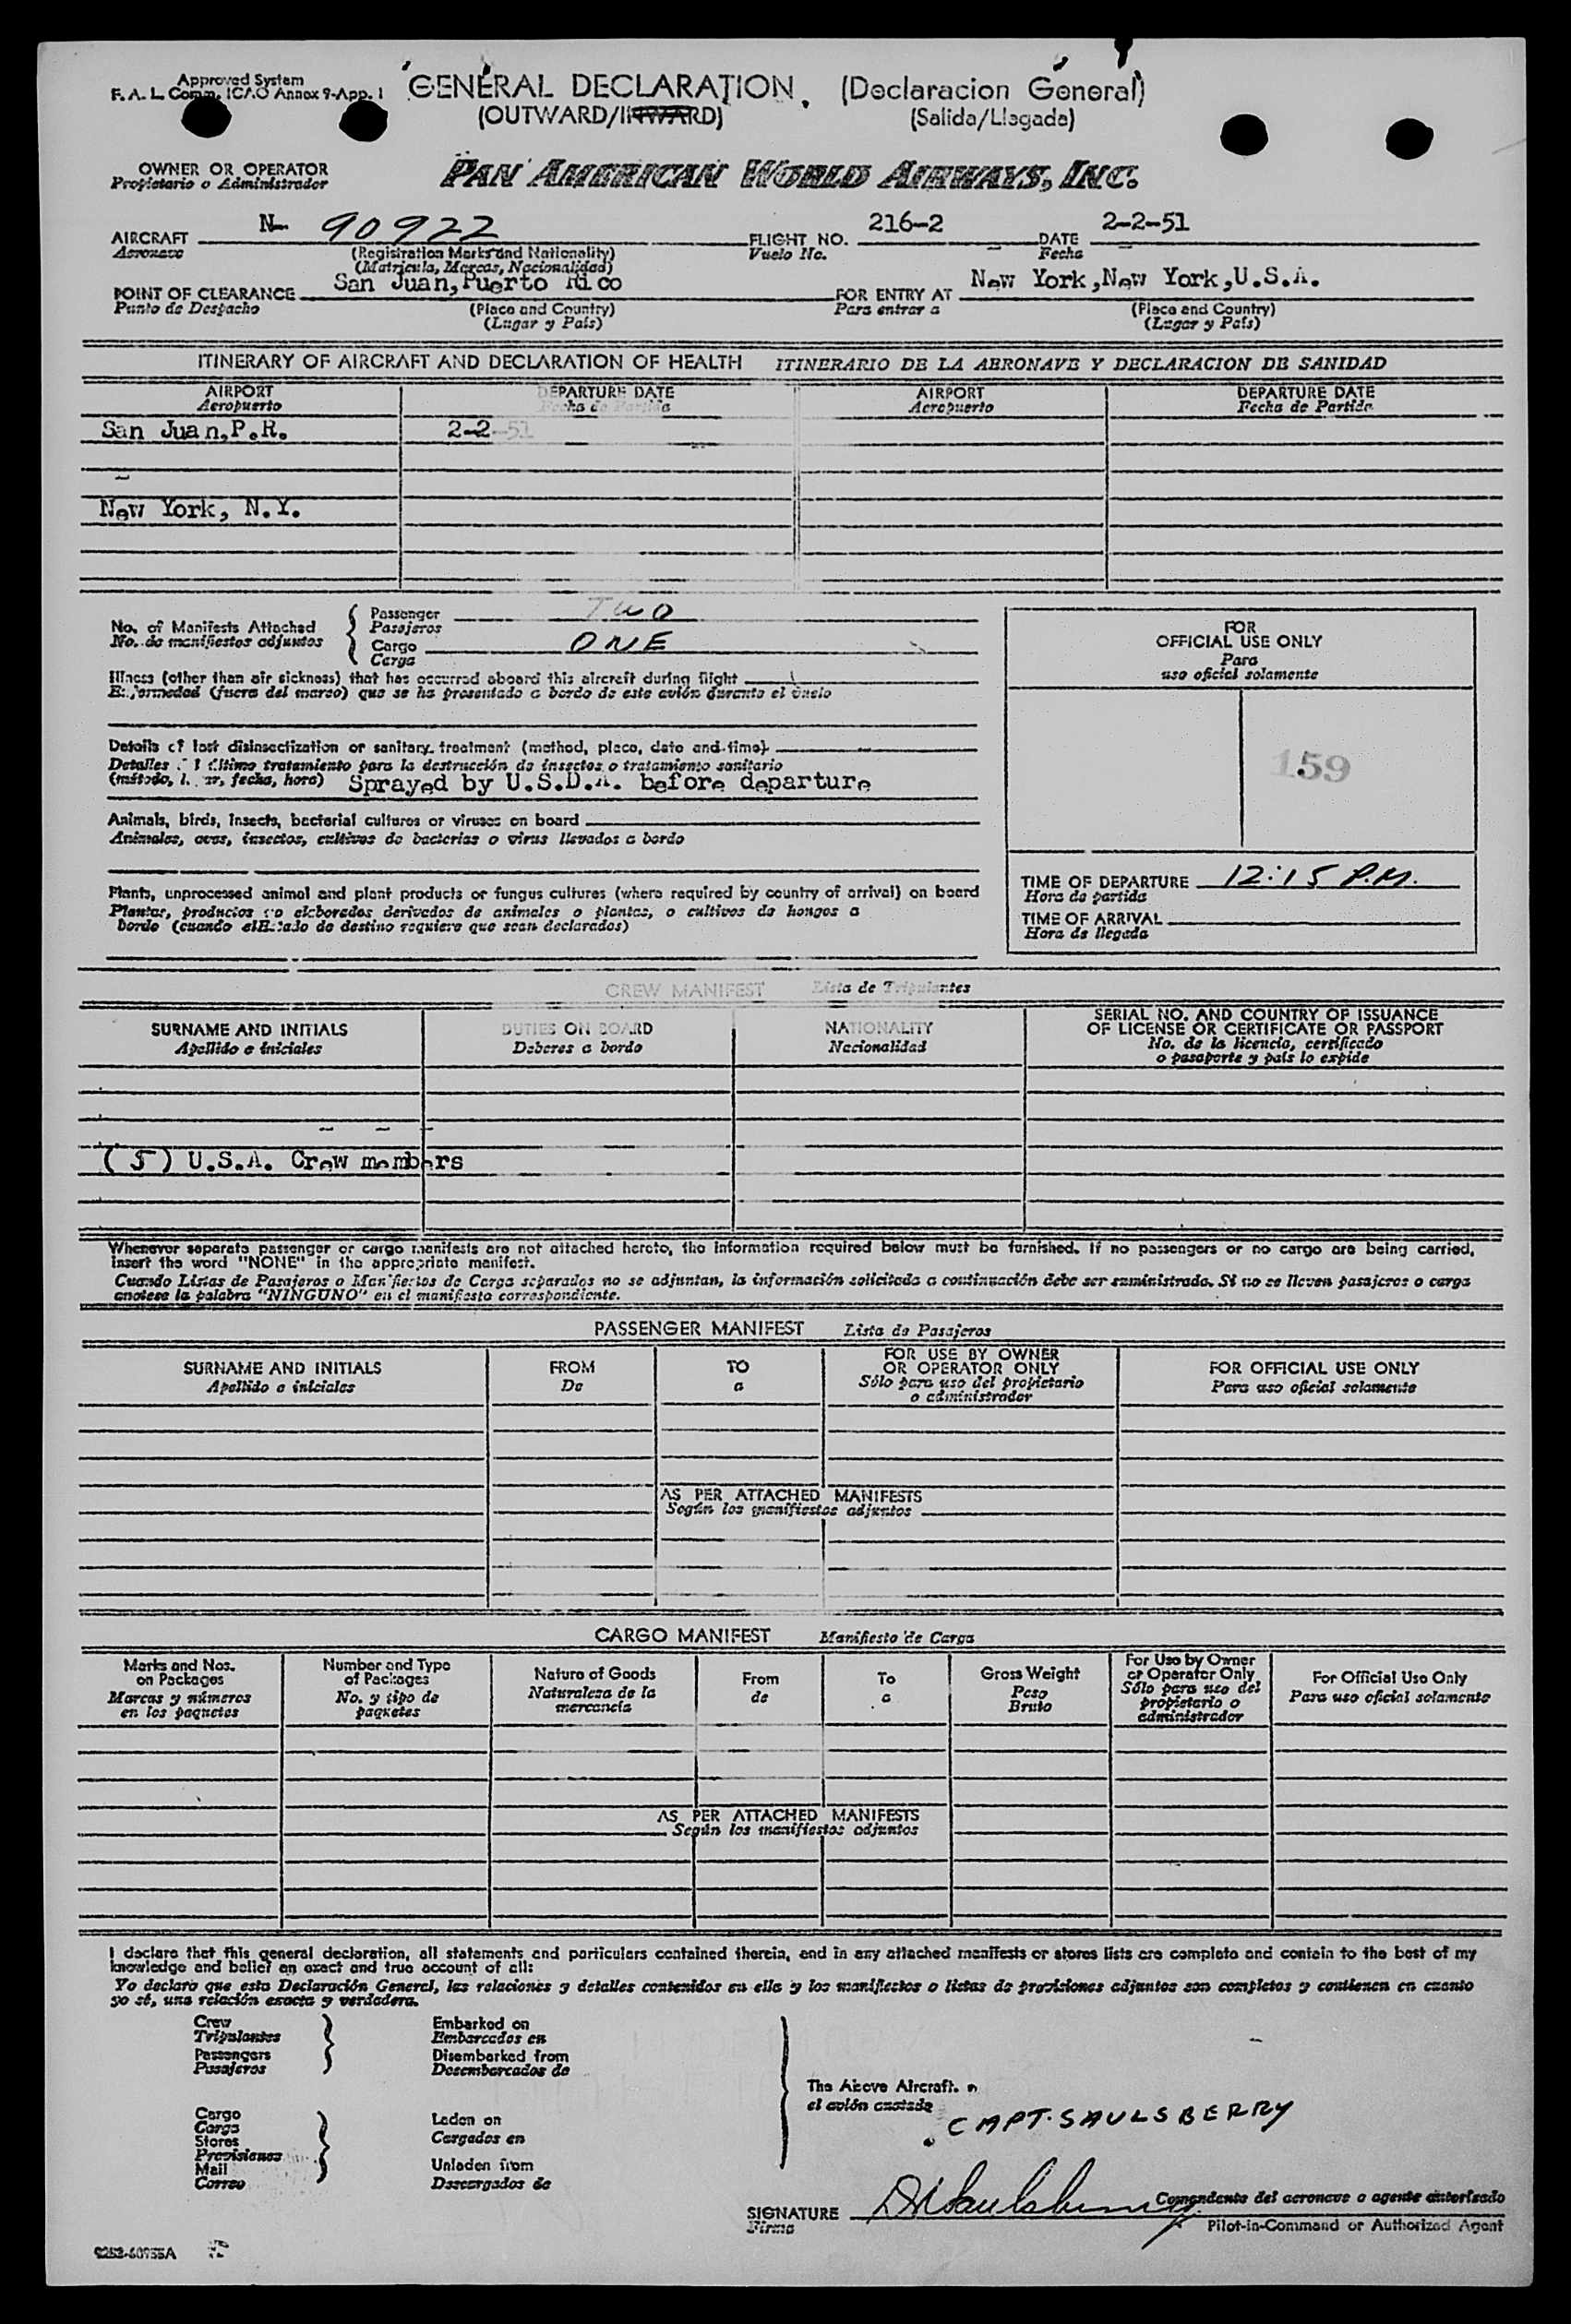 Approved System
F. A. L. Comm. ICAO Annex 9-App. 1
GENERAL DECLARATION. (Declaracion General)
(OUTWARD/INWARD) (Salida/Llegada)
OWNER OR OPERATOR
Propietario o Administrador
PAN AMERICAN WORLD AIRWAYS, INC.
AIRCRAFT N- 90922 FLIGHT NO. 216-2 DATE 2-2-51
Aeronave (Registration Marks and Nationality) Vuelo No. Fecha
(Matrícula, Marcas, Nacionalidad)
POINT OF CLEARANCE San Juan,Puerto Rico FOR ENTRY AT New York,New York,U.S.A.
Punto de Despacho (Place and Country) Para entrar a (Place and Country)
(Lugar y País) (Lugar y País)
ITINERARY OF AIRCRAFT AND DECLARATION OF HEALTH ITINERARIO DE LA AERONAVE Y DECLARACION DE SANIDAD
AIRPORT DEPARTURE DATE AIRPORT DEPARTURE DATE
Aeropuerto Fecha de Partida Aeropuerto Fecha de Partida
San Juan,P.R. 2-2-51
New York, N.Y.
No. of Manifests Attached
No. de manifiestos adjuntos
Passenger TWO
Pasajeros
Cargo ONE
Carga
FOR
OFFICIAL USE ONLY
Para
uso oficial solamente
Illness (other than air sickness) that has occurred aboard this aircraft during flight
Enfermedad (fuera del mareo) que se ha presentado a bordo de este avión durante el vuelo
Details of last disinsectization or sanitary treatment (method, place, date and time)
Detalles del último tratamiento para la destrucción de insectos o tratamiento sanitario
(método, lugar, fecha, hora) Sprayed by U.S.D.A. before departure
159
Animals, birds, insects, bacterial cultures or viruses on board
Animales, aves, insectos, cultivos de bacterias o virus llevados a bordo
Plants, unprocessed animal and plant products or fungus cultures (where required by country of arrival) on board
Plantas, productos no elaborados derivados de animales o plantas, o cultivos de hongos a
bordo (cuando el Estado de destino requiere que sean declarados)
TIME OF DEPARTURE 12:15 P.M.
Hora de partida
TIME OF ARRIVAL
Hora de llegada
CREW MANIFEST Lista de Tripulantes
SURNAME AND INITIALS DUTIES ON BOARD NATIONALITY SERIAL NO. AND COUNTRY OF ISSUANCE
OF LICENSE OR CERTIFICATE OR PASSPORT
Apellido e iniciales Deberes a bordo Nacionalidad No. de la licencia, certificado
o pasaporte y país lo expide
(5) U.S.A. Crew members
Whenever separate passenger or cargo manifests are not attached hereto, the information required below must be furnished. If no passengers or no cargo are being carried,
insert the word "NONE" in the appropriate manifest.
Cuando Listas de Pasajeros o Manifiestos de Carga separados no se adjuntan, la información solicitada a continuación debe ser suministrada. Si no se lleven pasajeros o carga
anotese la palabra "NINGUNO" en el manifiesto correspondiente.
PASSENGER MANIFEST Lista de Pasajeros
SURNAME AND INITIALS FROM TO FOR USE BY OWNER
OR OPERATOR ONLY FOR OFFICIAL USE ONLY
Apellido e iniciales De a Sólo para uso del propietario
o administrador Para uso oficial solamente
AS PER ATTACHED MANIFESTS
Según los manifiestos adjuntos
CARGO MANIFEST Manifiesto de Carga
Marks and Nos.
on Packages
Marcas y números
en los paquetes
Number and Type
of Packages
No. y tipo de
paquetes
Nature of Goods
Naturaleza de la
mercancía
From
de
To
a
Gross Weight
Peso
Bruto
For Use by Owner
or Operator Only
Sólo para uso del
propietario o
administrador
For Official Use Only
Para uso oficial solamente
AS PER ATTACHED MANIFESTS
Según los manifiestos adjuntos
I declare that this general declaration, all statements and particulars contained therein, and in any attached manifests or stores lists are complete and contain to the best of my
knowledge and belief an exact and true account of all:
Yo declaro que esta Declaración General, las relaciones y detalles contenidos en ella y los manifiestos o listas de provisiones adjuntos son completos y contienen en cuanto
yo sé, una relación exacta y verdadera.
Crew
Tripulantes
Passengers
Pasajeros
Embarked on
Embarcados en
Disembarked from
Desembarcados de
Cargo
Carga
Stores
Provisiones
Mail
Correo
Laden on
Cargados en
Unladen from
Descargados de
The Above Aircraft.
el avión anotado
CAPT. SAULSBERRY
Comandante del aeronave o agente autorizado
SIGNATURE
Firma
Pilot-in-Command or Authorized Agent